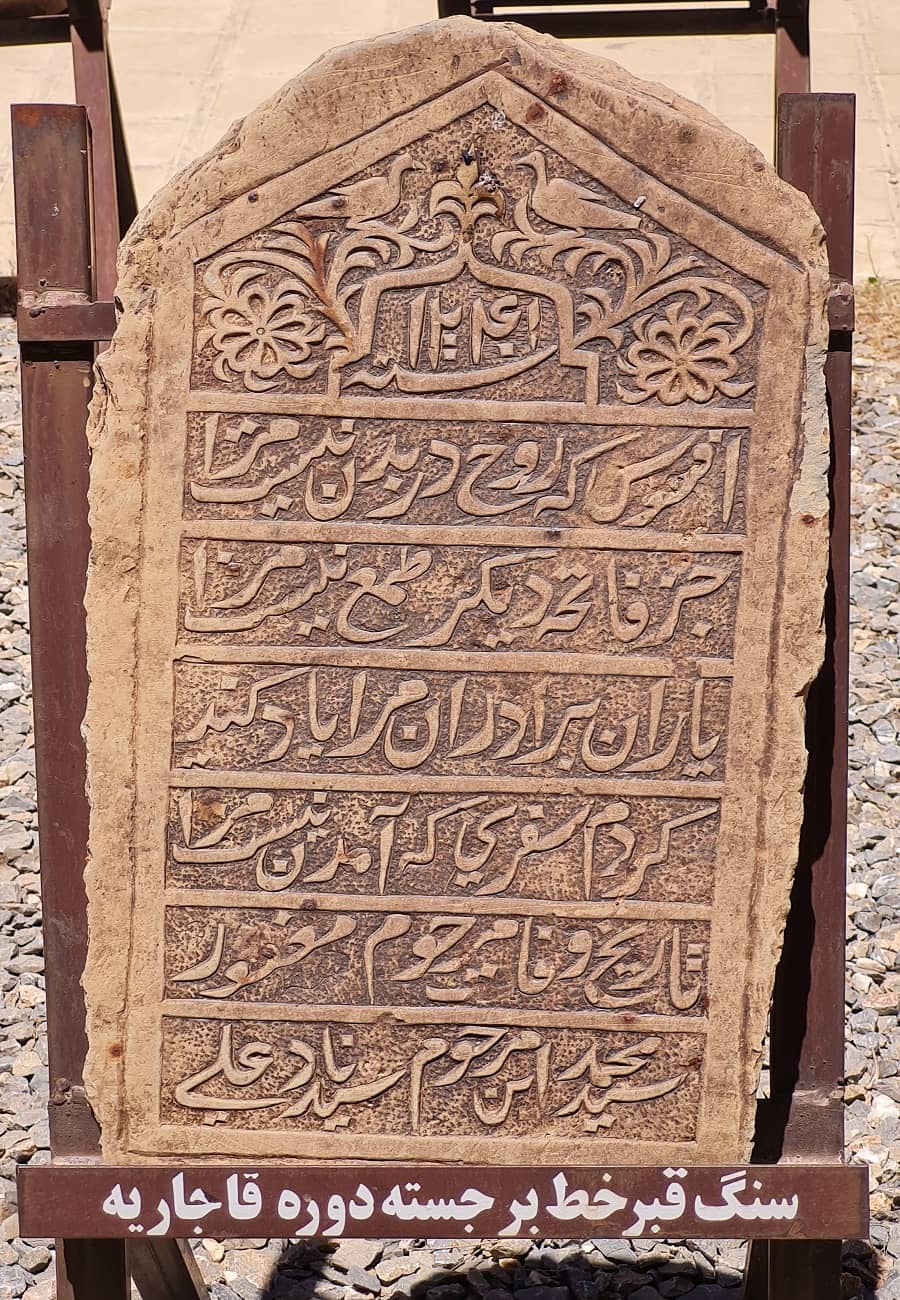 سنه ۱۲۴۱
افسوس که روح در بدن نیست مرا
جز فاتحه دیکر طمع نیست مرا
یاران برادران مرا یاد کنید
کردم سفری که آمدن نیست مرا
تاریخ وفات مرحوم مغفور
سید محمد ابن مرحوم سید ناد علی
سنگ قبر خط برجسته دوره قاجاریه